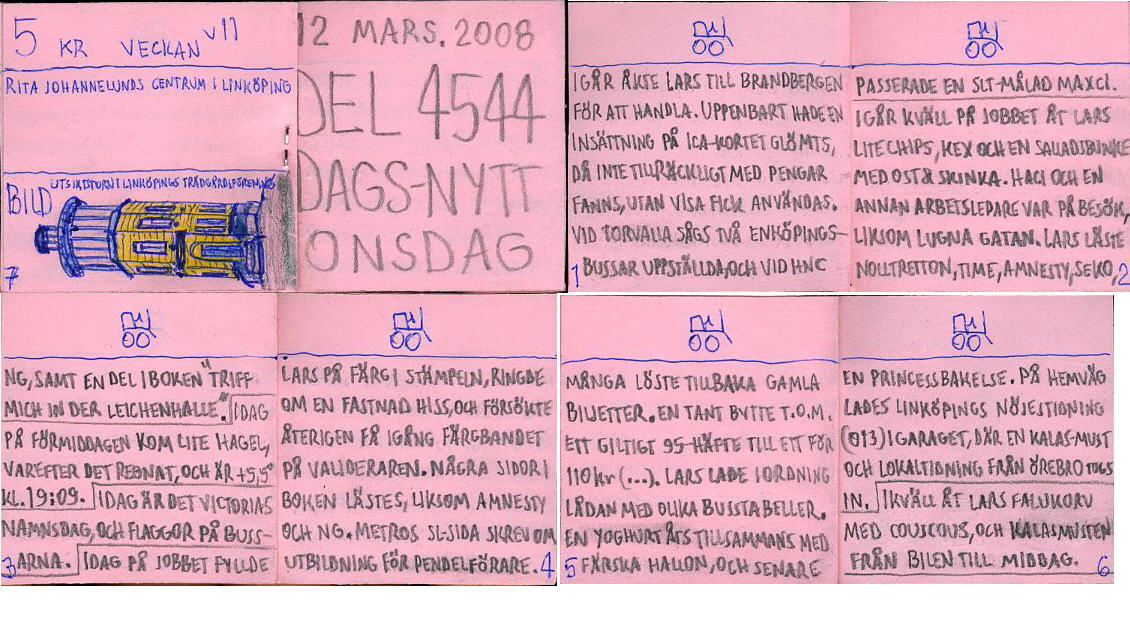 5 KR VECKAN V11
RITA JOHANNELUNDS CENTRUM I LINKÖPING
BILD
UTSIKTSTORN I LINKÖPINGS TRÄDGÅRDSFÖRENING
7
12 MARS. 2008
DEL 4544
DAGS-NYTT
ONSDAG
IGÅR ÅKTE LARS TILL BRANDBERGEN
FÖR ATT HANDLA. UPPENBART HADE EN
INSÄTTNING PÅ ICA-KORTET GLÖMTS,
DÅ INTE TILLRÄCKLIGT MED PENGAR
FANNS, UTAN VISA FICK ANVÄNDAS.
VID TORVALLA SÅGS TVÅ ENKÖPINGS-
BUSSAR UPPSTÄLLDA, OCH VID HNC
1
PASSERADE EN SLT-MÅLAD MAXCI.
IGÅR KVÄLL PÅ JOBBET ÅT LARS
LITE CHIPS, KEX OCH EN SALLADSBUNKE
MED OST & SKINKA. HACI OCH EN
ANNAN ARBETSLEDARE VAR PÅ BESÖK,
LIKSOM LUGNA GATAN. LARS LÄSTE
NOLLTRETTON, TIME, AMNESTY, SEKO,
2
NG, SAMT EN DEL I BOKEN "TRIFF
MICH IN DER LEICHENHALLE". IDAG
PÅ FÖRMIDDAGEN KOM LITE HAGEL,
VAREFTER DET REGNAT, OCH ÄR +5,5°
KL. 19:09. IDAG ÄR DET VICTORIAS
NAMNSDAG, OCH FLAGGOR PÅ BUSS-
ARNA. IDAG PÅ JOBBET FYLLDE
3
LARS PÅ FÄRG I STÄMPELN, RINGDE
OM EN FASTNAD HISS, OCH FÖRSÖKTE
ÅTERIGEN FÅ IGÅNG FÄRGBANDET
PÅ VALIDERAREN. NÅGRA SIDOR I
BOKEN LÄSTES, LIKSOM AMNESTY
OCH NG. METROS SL-SIDA SKREV OM
UTBILDNING FÖR PENDELFÖRARE.
4
MÅNGA LÖSTE TILLBAKA GAMLA
BILJETTER. EN TANT BYTTE T.O.M.
ETT GILTIGT 95-HÄFTE TILL ETT FÖR
110 kr (...). LARS LADE I ORDNING
LÅDAN MED OLIKA BUSSTABELLER.
EN YOGHURT ÅTS TILLSAMMANS MED
FÄRSKA HALLON, OCH SENARE
5
EN PRINCESSBAKELSE. PÅ HEMVÄG
LADES LINKÖPINGS NÖJESTIDNING
(013) I GARAGET, DÄR EN KALAS-MUST
OCH LOKALTIDNING FRÅN ÖREBRO TOGS
IN. IKVÄLL ÅT LARS FALUKORV
MED COUSCOUS, OCH KALASMUSTEN
FRÅN BILEN TILL MIDDAG.
6